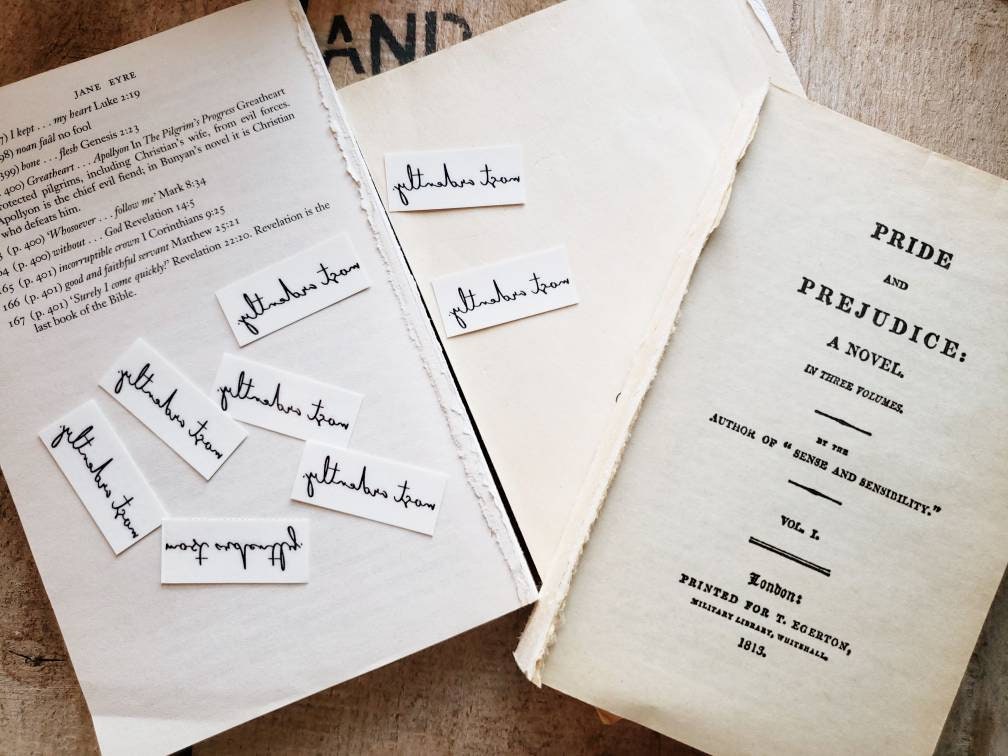 JANE EYRE
7) I kept . . . my heart Luke 2:19
98) noan faàl no fool
399) bone . . . flesh Genesis 2:23
. 400) Greatheart . . . Apollyon In The Pilgrim's Progress Greatheart
rotected pilgrims, including Christian's wife, from evil forces.
Apollyon is the chief evil fiend; in Bunyan's novel it is Christian
who defeats him.
3 (p. 400) 'Whosoever . . . follow me' Mark 8:34
64 (p. 400) without . . . God Revelation 14:5
165 (p. 401) incorruptible crown I Corinthians 9:25
166 (p. 401) good and faithful servant Matthew 25:21
167 (p. 401) 'Surely I come quickly!' Revelation 22:20. Revelation is the
last book of the Bible.
AND
most ardently.
most ardently.
most ardently.
most ardently.
most ardently.
most ardently.
most ardently.
most ardently.
PRIDE
AND
PREJUDICE:
A NOVEL.
IN THREE VOLUMES.
BY THE
AUTHOR OF "SENSE AND SENSIBILITY."
VOL. I.
London:
PRINTED FOR T. EGERTON,
MILITARY LIBRARY, WHITEHALL.
1813.